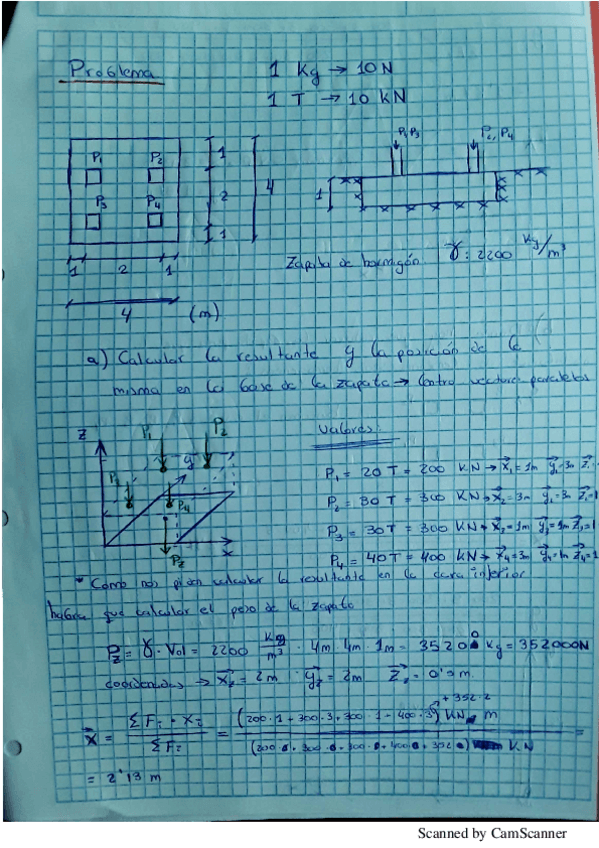 Problema
1 Kg → 10 N
1 T → 10 kN
P₁ P₂
P₃ P₄
1
2
1
4
1 2 1
4 (m)
P₁P₃ P₂, P₄
1
Zapata de hormigón γ: 2200 Kg/m³
a) Calcular la resultante y la posición de la
misma en la base de la zapata → Centro vectores paralelos
Z
P₁ P₂
y
P₃ P₄
x
P_z
Valores:
P₁ = 20 T = 200 KN → x₁ = 1m y₁ = 3m z₁ = 1
P₂ = 30 T = 300 KN → x₂ = 3m y₂ = 3m z₂ = 1
P₃ = 30 T = 300 KN → x₃ = 1m y₃ = 1m z₃ = 1
P₄ = 40 T = 400 KN → x₄ = 3m y₄ = 1m z₄ = 1
* Como nos piden calcular la resultante en la cara inferior
habra que calcular el peso de la zapata
P_z = γ · Vol = 2200 Kg/m³ · 4m · 4m · 1m = 35200 Kg = 352000N
coordenadas → x_z = 2m y_z = 2m z_z = 0'5m.
x = Σ Fᵢ · xᵢ / Σ Fᵢ = (200·1 + 300·3 + 300·1 + 400·3 + 352·2) KN · m / (200 + 300 + 300 + 400 + 352) KN =
= 2'13 m
Scanned by CamScanner